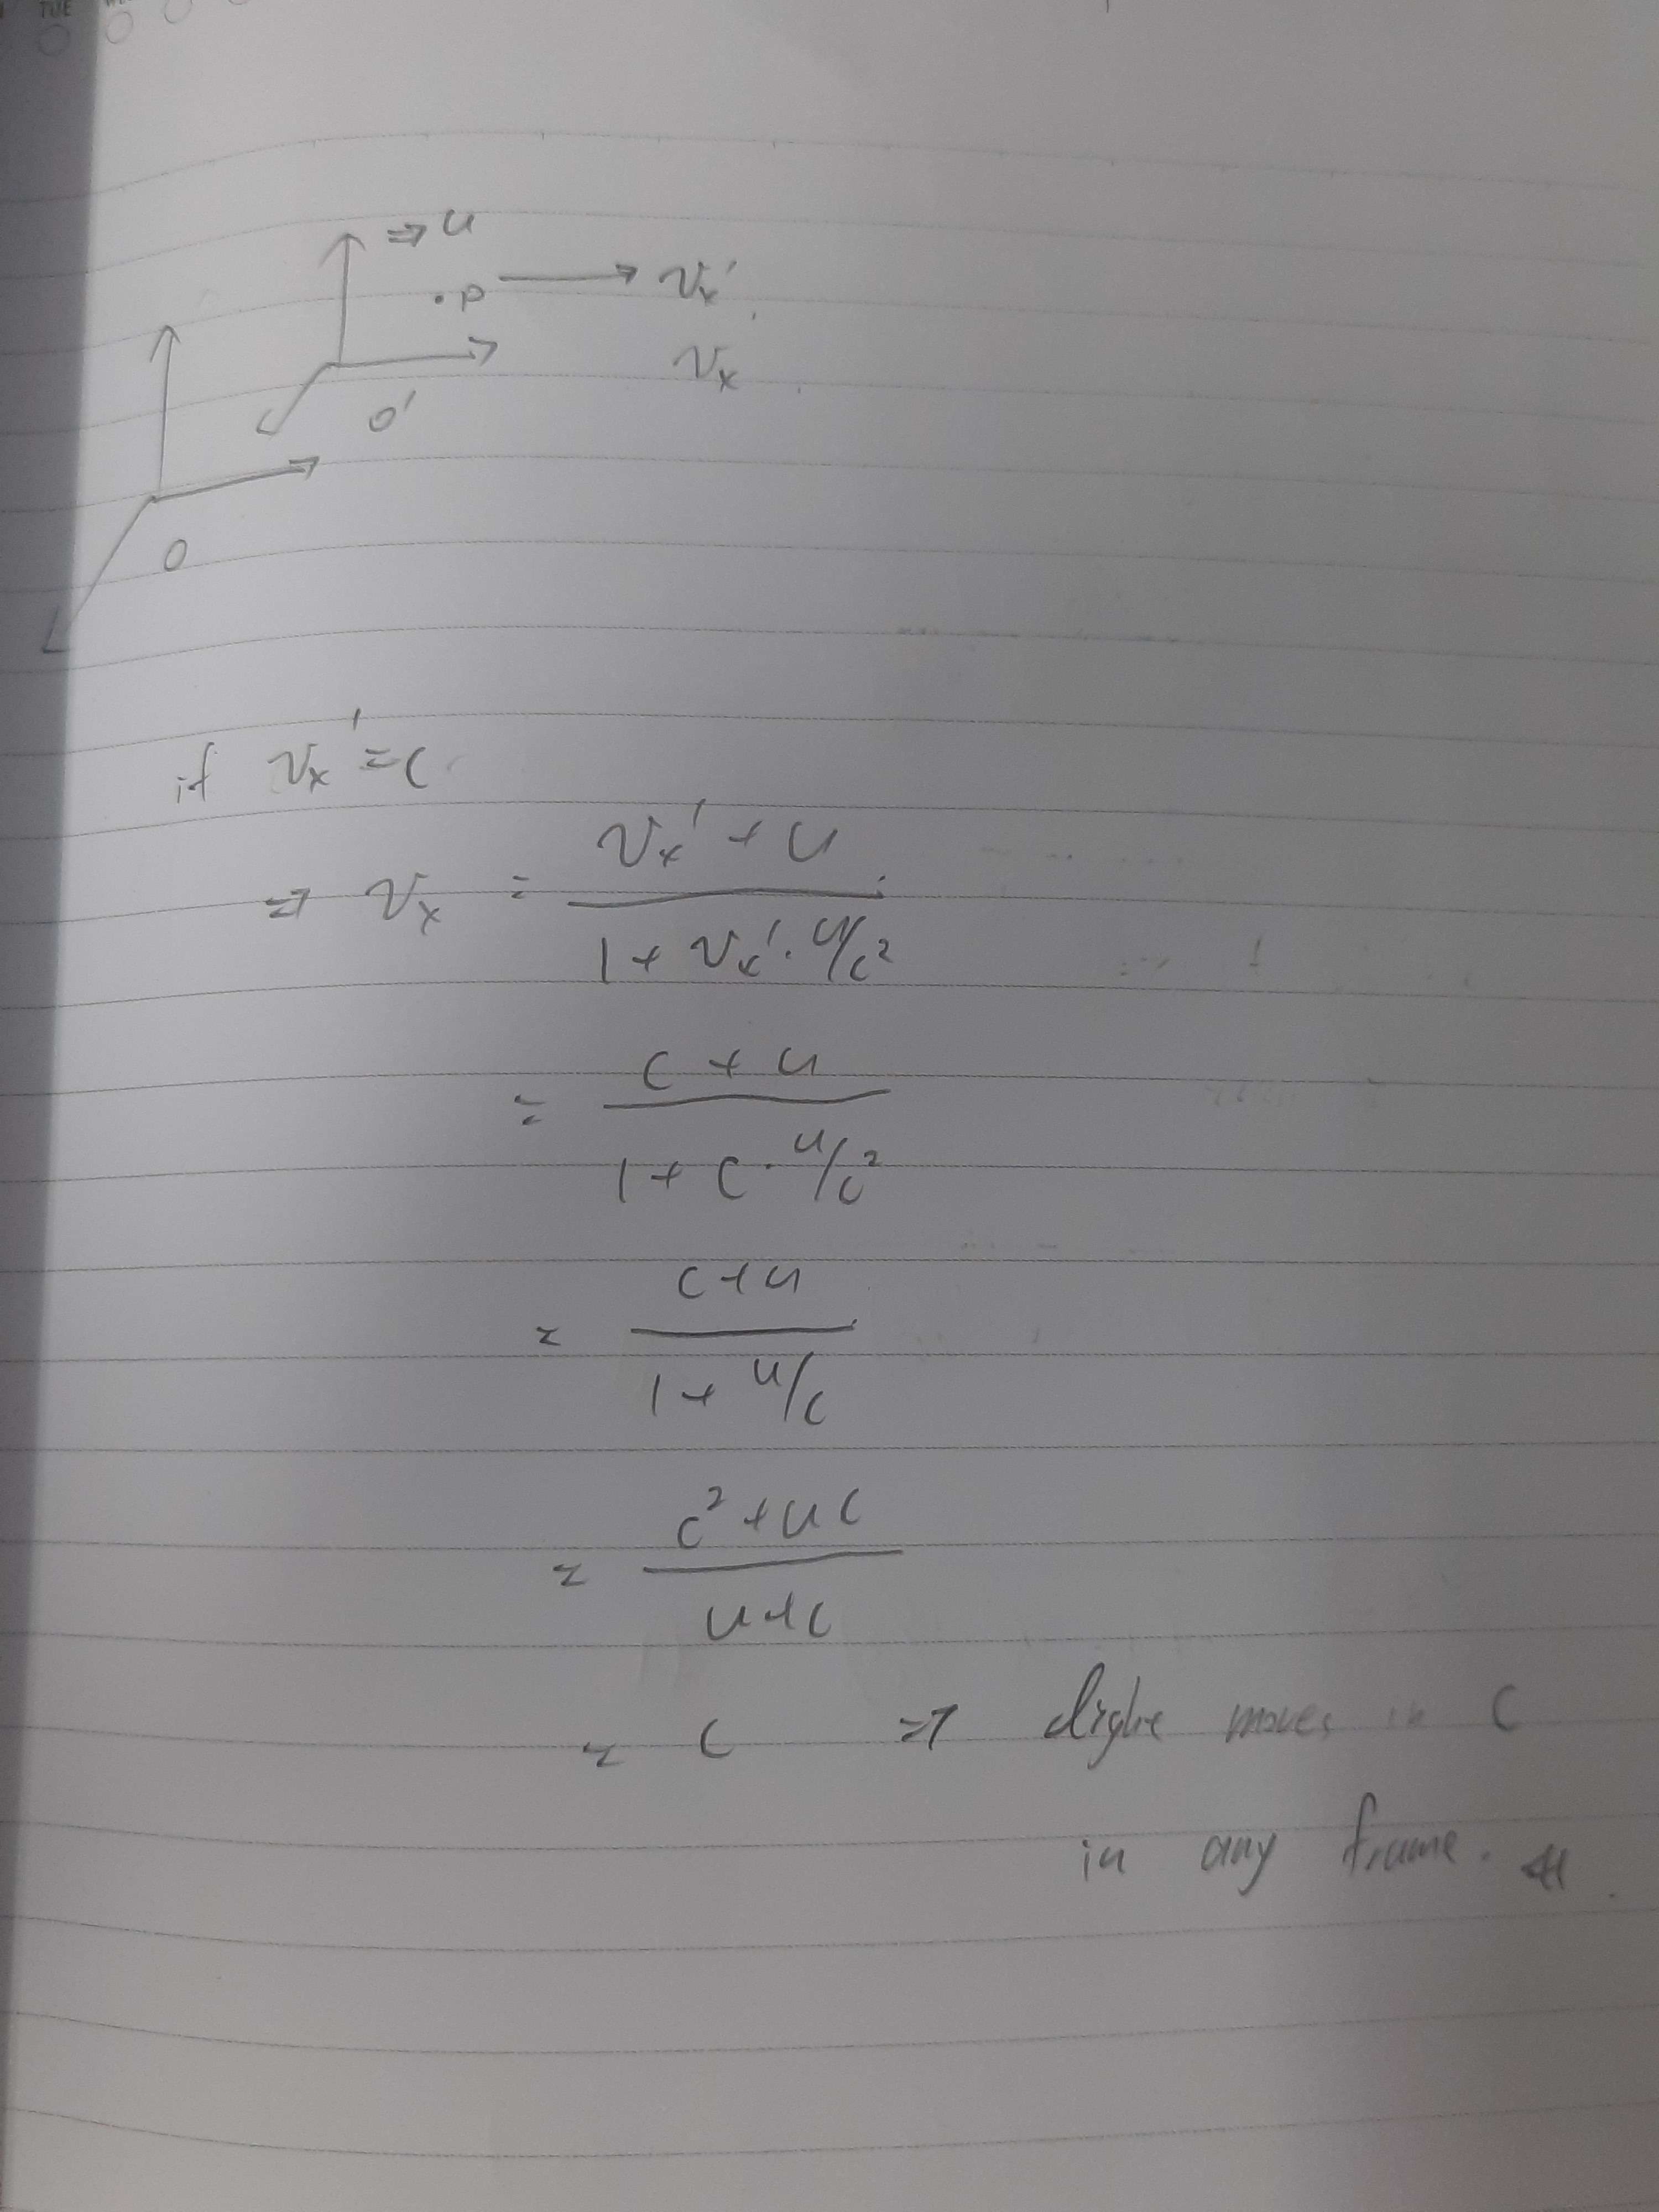 TUE
⇒ u
· P → Vx'
Vx
O'
O
if Vx' = C
⇒ Vx = (Vx' + u) / (1 + Vx' · u/c²)
= (C + u) / (1 + C · u/c²)
= (C + u) / (1 + u/c)
= (C² + uC) / (u + C)
= C ⇒ light moves in C
in any frame.